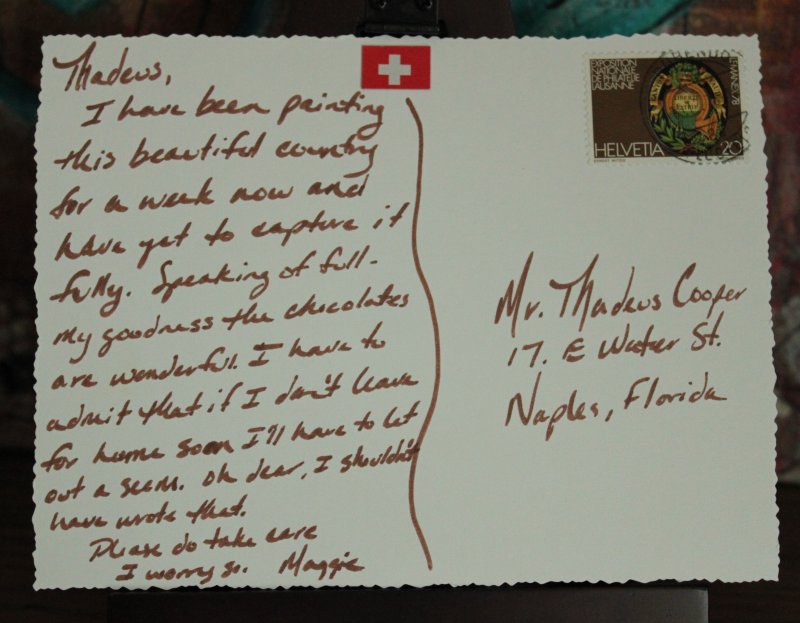 Thadeus,
I have been painting
this beautiful country
for a week now and
have yet to capture it
fully. Speaking of full-
my goodness the chocolates
are wonderful. I have to
admit that if I don't leave
for home soon I'll have to let
out a seem. Oh dear, I shouldn't
have wrote that.
Please do take care
I worry so. Maggie
EXPOSITION
NATIONALE
DE PHILATELIE
LAUSANNE
LEMANEX 78
LIBERTE
ET
PATRIE
HELVETIA 20
Mr. Thadeus Cooper
17. E Water St.
Naples, Florida